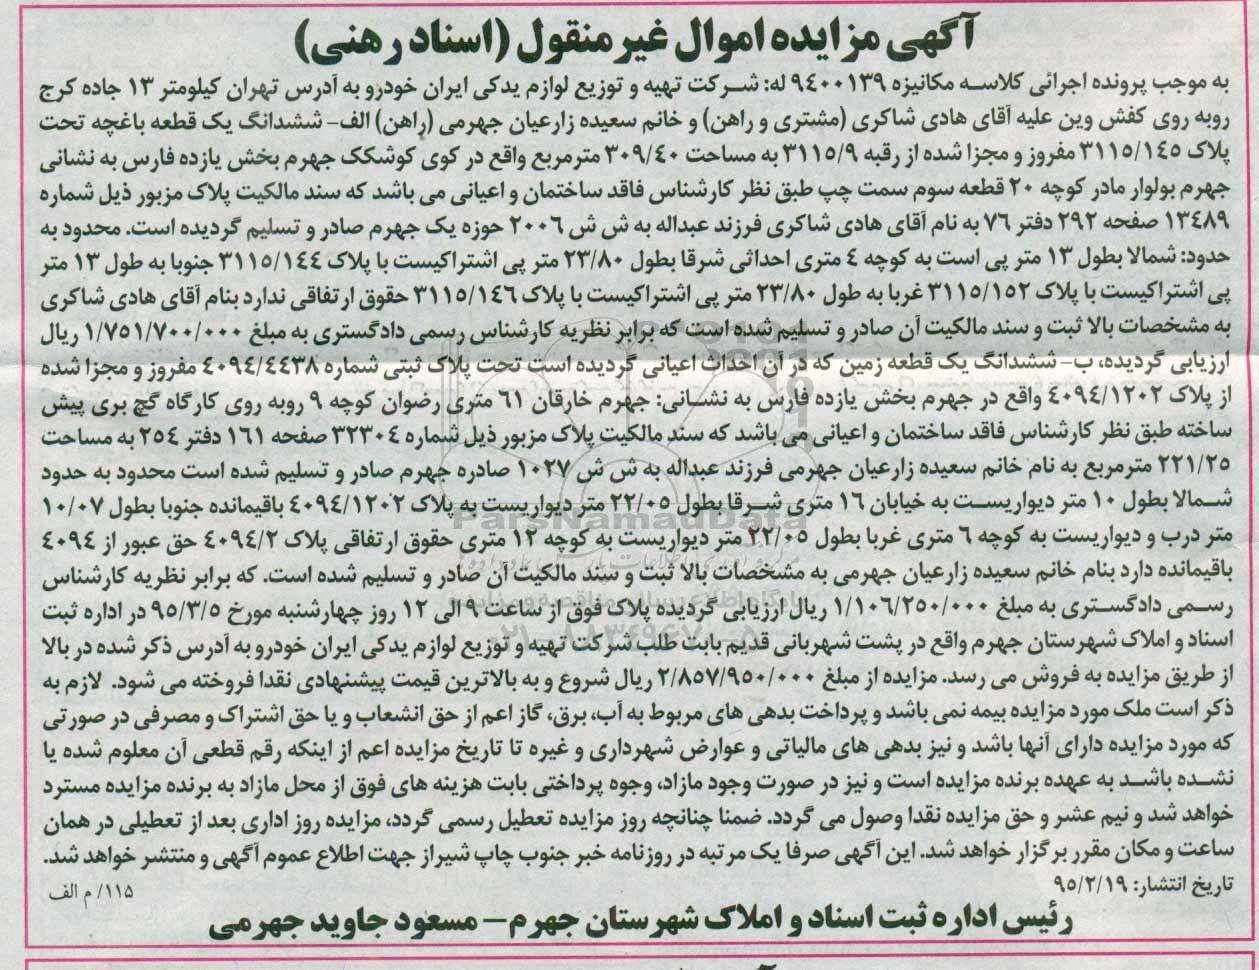 آگهی مزایده اموال غیر منقول (اسناد رهنی)
به موجب پرونده اجرائی کلاسه مکانیزه ۹۴۰۰۱۳۹ له: شرکت تهیه و توزیع لوازم یدکی ایران خودرو به آدرس تهران کیلومتر ۱۳ جاده کرج
روبه روی کفش وین علیه آقای هادی شاکری (مشتری و راهن) و خانم سعیده زارعیان جهرمی (راهن) الف- ششدانگ یک قطعه باغچه تحت
پلاک ۳۱۱۵/۱۴۵ مفروز و مجزا شده از رقبه ۳۱۱۵/۹ به مساحت ۳۰۹/۴۰ مترمربع واقع در کوی کوشکک جهرم بخش یازده فارس به نشانی
جهرم بولوار مادر کوچه ۲۰ قطعه سوم سمت چپ طبق نظر کارشناس فاقد ساختمان و اعیانی می باشد که سند مالکیت پلاک مزبور ذیل شماره
۱۳۴۸۹ صفحه ۲۹۲ دفتر ۷۶ به نام آقای هادی شاکری فرزند عبداله به ش ش ۲۰۰۶ حوزه یک جهرم صادر و تسلیم گردیده است. محدود به
حدود: شمالا بطول ۱۳ متر پی است به کوچه ۴ متری احداثی شرقا بطول ۲۳/۸۰ متر پی اشتراکیست با پلاک ۳۱۱۵/۱۴۴ جنوبا به طول ۱۳ متر
پی اشتراکیست با پلاک ۳۱۱۵/۱۵۲ غربا به طول ۲۳/۸۰ متر پی اشتراکیست با پلاک ۳۱۱۵/۱۴۶ حقوق ارتفاقی ندارد بنام آقای هادی شاکری
به مشخصات بالا ثبت و سند مالکیت آن صادر و تسلیم شده است که برابر نظریه کارشناس رسمی دادگستری به مبلغ ۱/۷۵۱/۷۰۰/۰۰۰ ریال
ارزیابی گردیده، ب- ششدانگ یک قطعه زمین که در آن احداث اعیانی گردیده است تحت پلاک ثبتی شماره ۴۰۹۴/۴۴۳۸ مفروز و مجزا شده
از پلاک ۴۰۹۴/۱۲۰۲ واقع در جهرم بخش یازده فارس به نشانی: جهرم خارقان ۶۱ متری رضوان کوچه ۹ روبه روی کارگاه گچ بری پیش
ساخته طبق نظر کارشناس فاقد ساختمان و اعیانی می باشد که سند مالکیت پلاک مزبور ذیل شماره ۳۲۳۰۴ صفحه ۱۶۱ دفتر ۲۵۴ به مساحت
۲۲۱/۲۵ مترمربع به نام خانم سعیده زارعیان جهرمی فرزند عبداله به ش ش ۱۰۲۷ صادره جهرم صادر و تسلیم شده است محدود به حدود
شمالا بطول ۱۰ متر دیواریست به خیابان ۱۶ متری شرقا بطول ۲۲/۰۵ متر دیواریست به پلاک ۴۰۹۴/۱۲۰۲ باقیمانده جنوبا بطول ۱۰/۰۷
متر درب و دیواریست به کوچه ۶ متری غربا بطول ۲۲/۰۵ متر دیواریست به کوچه ۱۲ متری حقوق ارتفاقی پلاک ۴۰۹۴/۲ حق عبور از ۴۰۹۴
باقیمانده دارد بنام خانم سعیده زارعیان جهرمی به مشخصات بالا ثبت و سند مالکیت آن صادر و تسلیم شده است. که برابر نظریه کارشناس
رسمی دادگستری به مبلغ ۱/۱۰۶/۲۵۰/۰۰۰ ریال ارزیابی گردیده پلاک فوق از ساعت ۹ الی ۱۲ روز چهارشنبه مورخ ۹۵/۳/۵ در اداره ثبت
اسناد و املاک شهرستان جهرم واقع در پشت شهربانی قدیم بابت طلب شرکت تهیه و توزیع لوازم یدکی ایران خودرو به آدرس ذکر شده در بالا
از طریق مزایده به فروش می رسد. مزایده از مبلغ ۲/۸۵۷/۹۵۰/۰۰۰ ریال شروع و به بالاترین قیمت پیشنهادی نقدا فروخته می شود. لازم به
ذکر است ملک مورد مزایده بیمه نمی باشد و پرداخت بدهی های مربوط به آب، برق، گاز اعم از حق انشعاب و یا حق اشتراک و مصرفی در صورتی
که مورد مزایده دارای آنها باشد و نیز بدهی های مالیاتی و عوارض شهرداری و غیره تا تاریخ مزایده اعم از اینکه رقم قطعی آن معلوم شده یا
نشده باشد به عهده برنده مزایده است و نیز در صورت وجود مازاد، وجوه پرداختی بابت هزینه های فوق از محل مازاد به برنده مزایده مسترد
خواهد شد و نیم عشر و حق مزایده نقدا وصول می گردد. ضمنا چنانچه روز مزایده تعطیل رسمی گردد، مزایده روز اداری بعد از تعطیلی در همان
ساعت و مکان مقرر برگزار خواهد شد. این آگهی صرفا یک مرتبه در روزنامه خبر جنوب چاپ شیراز جهت اطلاع عموم آگهی و منتشر خواهد شد.
تاریخ انتشار: ۹۵/۲/۱۹
۱۱۵/ م الف
رئیس اداره ثبت اسناد و املاک شهرستان جهرم- مسعود جاوید جهرمی
ParsNamadData